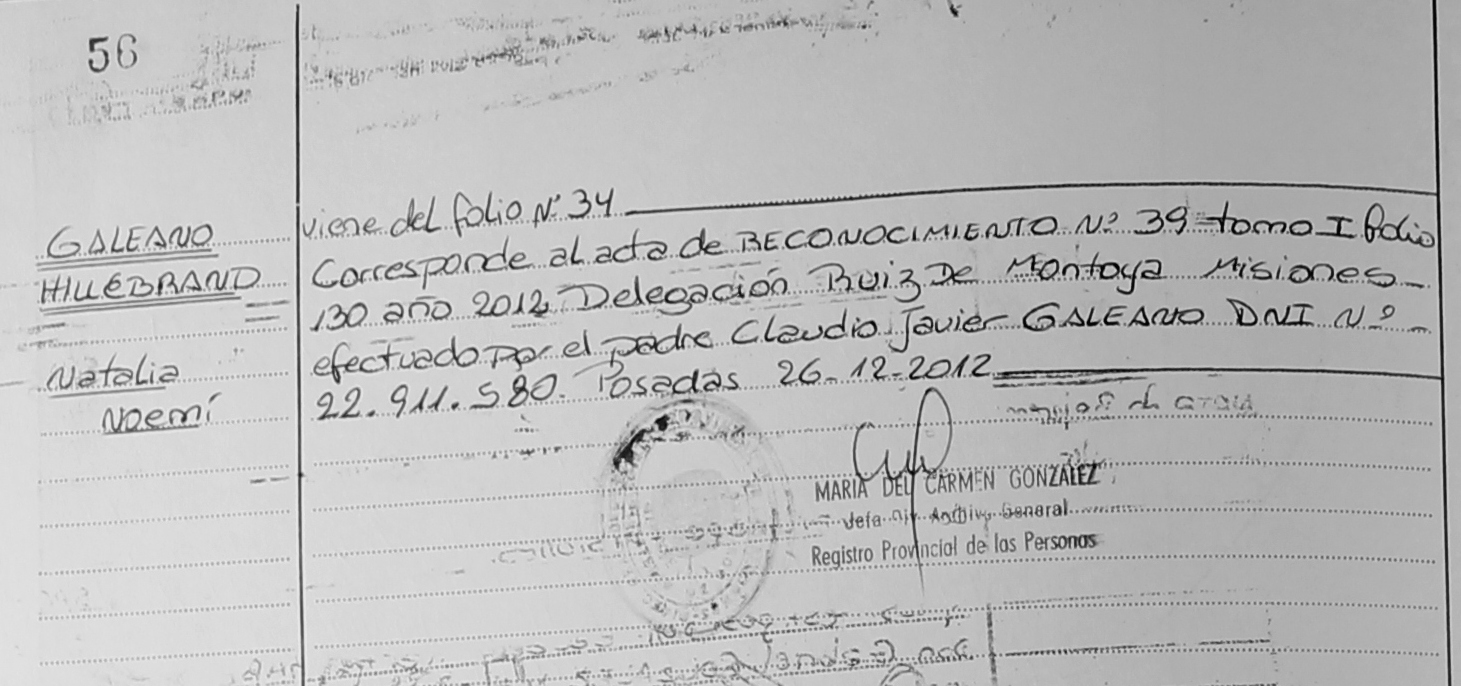 56
GALEANO
HILLEBRAND
Natalia
Noemí
viene del folio Nº 34
Corresponde al acta de RECONOCIMIENTO Nº 39 tomo I folio
130 año 2012 Delegación Ruiz De Montoya Misiones
efectuado por el padre Claudio Javier GALEANO DNI Nº
22.911.580. Posadas 26-12-2012
MARIA DEL CARMEN GONZALEZ
Jefa Div. Archivo General
Registro Provincial de las Personas